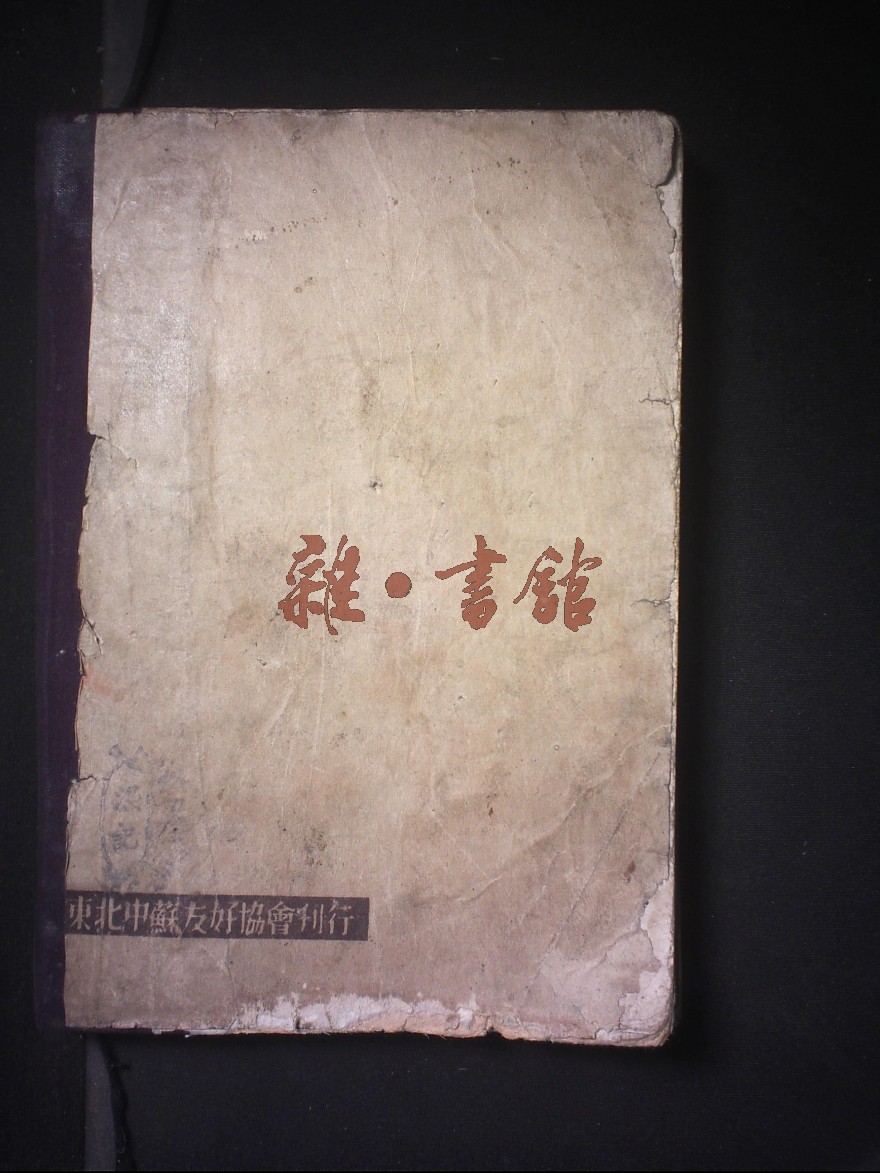 雜·書館
東北中蘇友好協會刊行